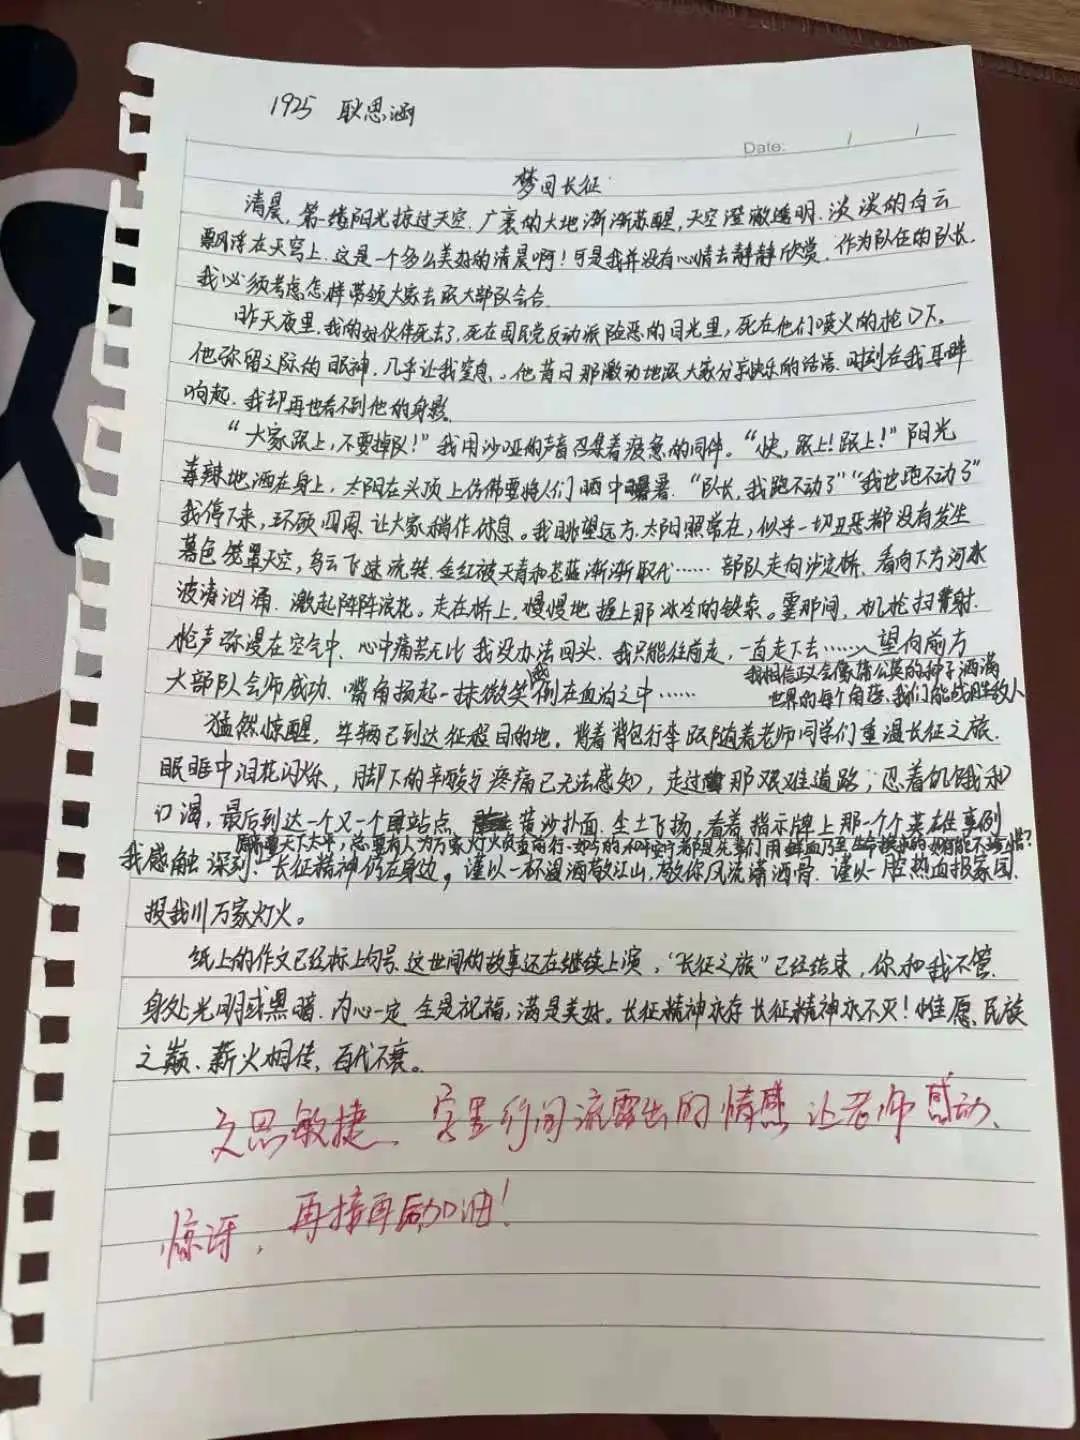 1925 耿思涵
Date: / /
梦回长征
清晨，第一缕阳光掠过天空，广袤的大地渐渐苏醒，天空澄澈透明，淡淡的白云
飘浮在天穹上，这是一个多么美好的清晨啊！可是我并没有心情去静静欣赏，作为队伍的队长，
我必须考虑怎样带领大家去跟大部队会合。
昨天夜里，我的好伙伴死去了，死在国民党反动派险恶的目光里，死在他们喷火的枪口下。
他弥留之际的眼神，几乎让我窒息。他昔日那激动地跟大家分享快乐的话语，时刻在我耳畔
响起，我却再也看不到他的身影。
“大家跟上，不要掉队！”我用沙哑的声音召集着疲惫的同伴。“快，跟上！跟上！”阳光
毒辣地洒在身上，太阳在头顶上仿佛要将人们晒中暑。“队长，我跑不动了”“我也跑不动了”
我停下来，环顾四周，让大家稍作休息。我眺望远方，太阳照常在，似乎一切丑恶都没有发生
暮色笼罩天空，乌云飞速流转，金红被天青和苍蓝渐渐取代……部队走向泸定桥，看向下方河水
波涛汹涌，激起阵阵浪花。走在桥上，慢慢地握上那冰冷的铁索。霎那间，机枪扫射，
枪声弥漫在空气中，心中痛苦无比，我没办法回头，我只能往前走，一直走下去……望向前方
大部队会师成功，嘴角扬起一抹微笑，倒在血泊之中……
我相信政会像蒲公英的种子洒满
世界的每个角落，我们能战胜敌人
猛然惊醒，车辆已到达征程目的地。背着背包行李跟随着老师同学们重温长征之旅，
眼眶中泪花闪烁，脚下的辛酸与疼痛已无法感知，走过那艰难道路；忍着饥饿和
口渴，最后到达一个又一个站点，黄沙扑面，尘土飞扬，看着指示牌上那一个个英雄事例
天下太平，总要有人为万家灯火负重前行，如今的和平安宁都是先辈们用鲜血乃至生命换来的
我感触深刻：长征精神仍在身边，谨以一杯温酒敬江山，敬你风流潇洒骨，谨以一腔热血报家国，
报我川万家灯火。
纸上的作文已经标上句号，这世间的故事还在继续上演，“长征之旅”已经结束，你和我不管
身处光明或黑暗，内心一定全是祝福，满是美好。长征精神永存 长征精神永不灭！惟愿民族
之巅，薪火相传，百代不衰。
文思敏捷、字里行间流露出的情感让老师感动、
惊讶，再接再励加油！